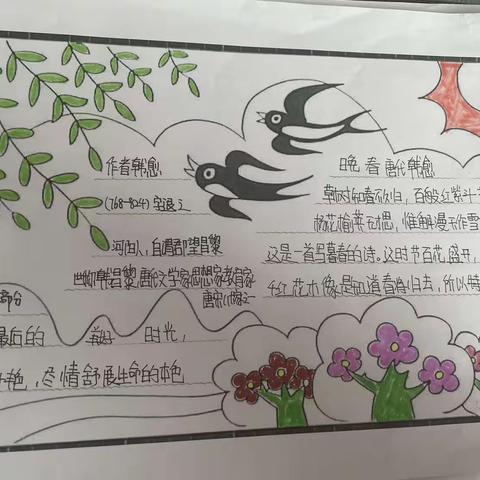 作者韩愈
(768-824)字退之
河阳人,自谓郡望昌黎
世称韩昌黎,唐代文学家思想家教育家
唐宋八大家之一
晚春 唐代韩愈
草树知春不久归,百般红紫斗
杨花榆荚无才思,惟解漫天作雪
这是一首写暮春的诗。这时节百花盛开,
红花木像是知道春将归去,所以
部分
最后的 美好 时光,
艳,尽情舒展生命的本色